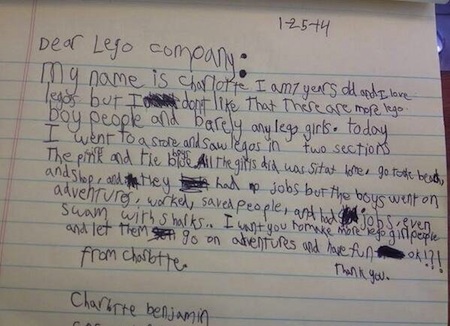 1-25-14
Dear Lego company:
My name is Charlotte I am 7 years old and I love
legos but I don't like that there are more lego
boy people and barely any lego girls. today
I went to a store and saw legos in two sections
The pink girls and the blue boys All the girls did was sit at home, go to the beach,
and shop, and they had no jobs but the boys went on
adventures, worked, saved people, and had jobs, even
swam with sharks.. I want you to make more lego girl people
and let them go on adventures and have fun ok!?!
from Charlotte.
Thank you.
Charlotte benjamin